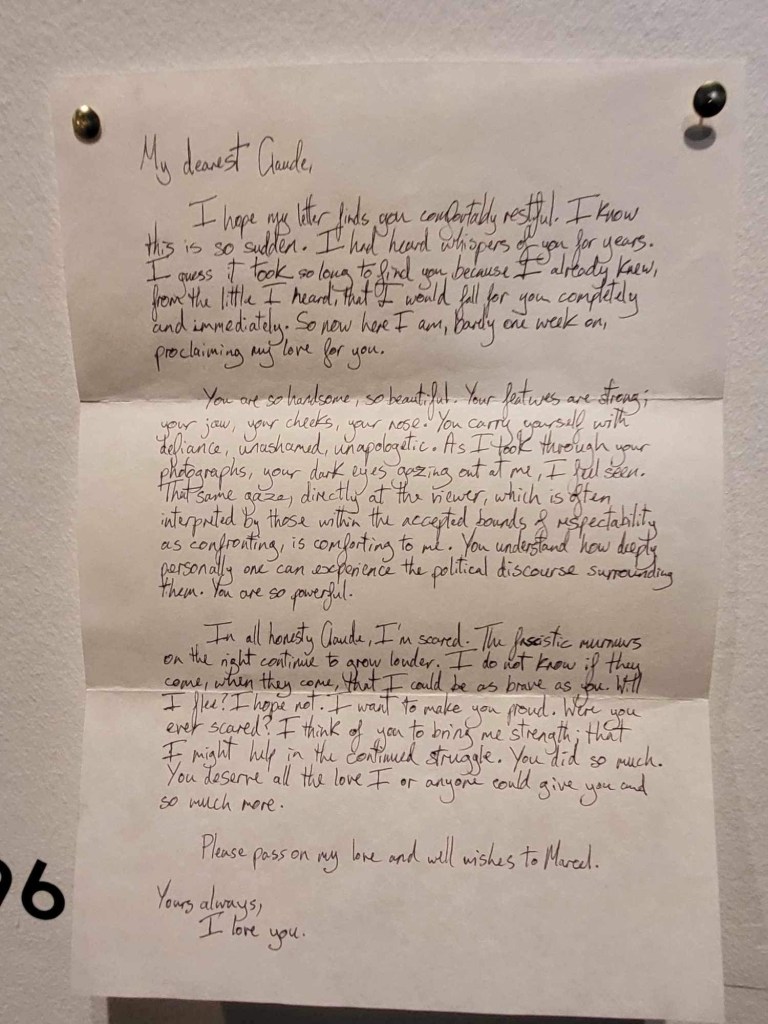 My dearest Claude,
I hope my letter finds you comfortably restful. I know
this is so sudden. I had heard whispers of you for years.
I guess it took so long to find you because I already knew,
from the little I heard, that I would fall for you completely
and immediately. So now here I am, barely one week on,
proclaiming my love for you.
You are so handsome, so beautiful. Your features are strong;
your jaw, your cheeks, your nose. You carry yourself with
defiance, unashamed, unapologetic. As I look through your
photographs, your dark eyes gazing out at me, I feel seen.
That same gaze, directly at the viewer, which is often
interpreted by those within the accepted bounds of respectability
as confronting, is comforting to me. You understand how deeply
personally one can experience the political discourse surrounding
them. You are so powerful.
In all honesty Claude, I'm scared. The fascistic murmurs
on the right continue to grow louder. I do not know if they
come, when they come, that I could be as brave as you. Will
I flee? I hope not. I want to make you proud. Were you
ever scared? I think of you to bring me strength; that
I might help in the continued struggle. You did so much.
You deserve all the love I or anyone could give you and
so much more.
Please pass on my love and well wishes to Marcel.
Yours always,
I love you.
96